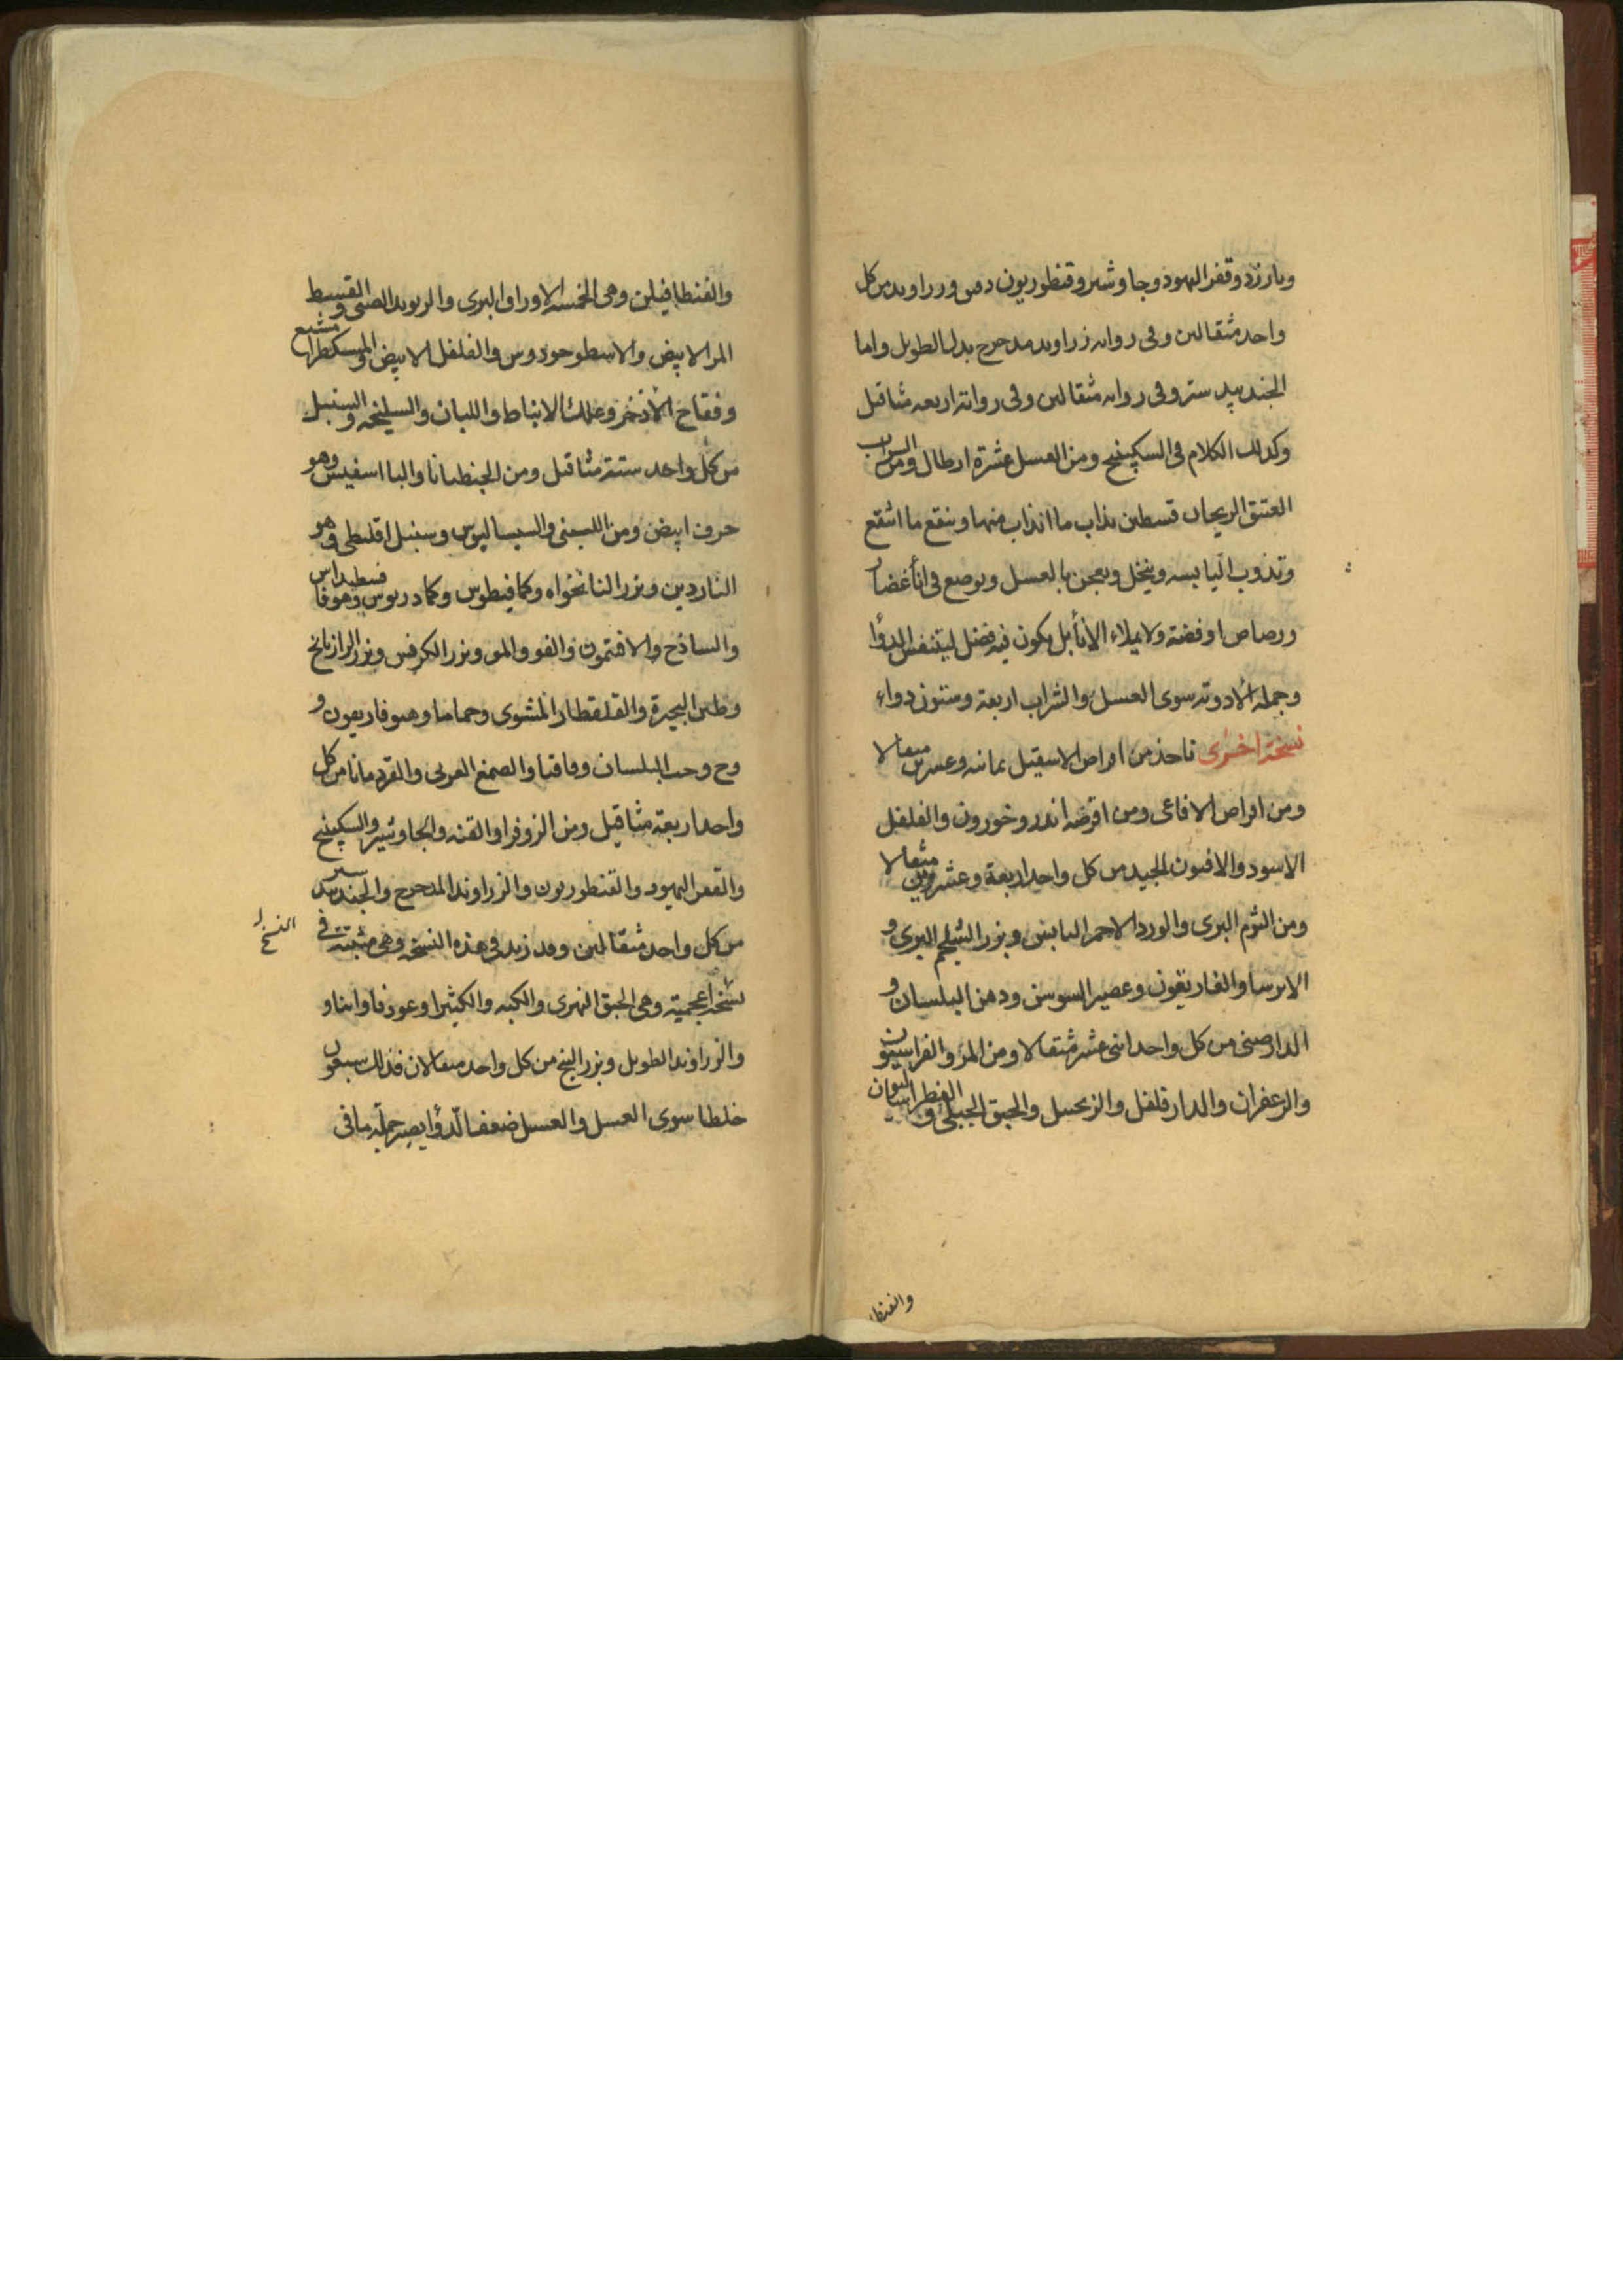 وبارزد وقفر اليهود وجاوشير وقنطوريون دقيق وزراوند من كل
واحد مثقالين وفى رواية زراوند مدحرج بدل الطويل واما
الجندبيدستر وفى رواية مثقالين وفى رواية اربعه مثاقيل
وكذلك الكلام فى السكبينج ومن العسل عشرة ارطال ومن الشراب
العتيق الريحانى قسطين يذاب ما انذاب منها وينقع ما انتقع
وتذوب اليابسه وينخل ويعجن بالعسل ويوضع فى اناء غضار
ورصاص او فضة ولا يملاء الاناء بل يكون فيه فضل ليتنفس الدوأ
وجملة الادوية سوى العسل والشراب اربعة وستون دواء
نسخة اخرى تاخذ من اقراص الاسقيل ثمانيه وعشرين مثقالا
ومن اقراص الافاعى ومن اقرصة اندروخورون والفلفل
الاسود والافيون الجيد من كل واحد اربعة وعشرين مثقالا
ومن الثوم البرى والورد الاحمر اليابس وبزر الشيلجم البرى و
الايرسا والغاريقون وعصير السوسن ودهن البلسان و
الدارصينى من كل واحد اثنى عشر مثقالا ومن المر والفراسيون
والزعفران والدارفلفل والزنجبيل والحبق الجبلى و الفطراساليون
والفنطا
والفنطافيلن وهى الخمسه الاوراق البرى والريوند الصينى والقسط
المر الابيض والاسطوخودوس والفلفل الابيض والمسكطرامشيع
وفقاح الاذخر وعلك الانباط واللبان والسليخه والسنبل
من كل واحد ستة مثاقيل ومن الجنطيانا والبااسفيس وهو
حرف ابيض ومن اللبنى والسيساليوس وسنبل اقليطى وهو
الناردين وبزر النانخواه وكمافيطوس وكمادريوس وهوفاقسطيداس
والساذج والافتمون والفو والمو وبزر الكرفس وبزر الرازيانج
وطين البحيرة والقلقطار المشوى وحماما وهيوفاريقون و
وج وحب البلسان وقاقيا والصمغ العربى والقردمانا من كل
واحد اربعة مثاقيل ومن الزوفرا والقنه والجاوشير والسكبينج
والقفر اليهود والقنطوريون والزراوند المدحرج والجندبيدستر
من كل واحد مثقالين وقد زيد فى هذه النسخة وهى مثبتة فى
النسخ
نسخة اعجمية وهى الحبق النهرى والكبه والكثيرا وعود فاوانيا و
والزراوند الطويل وبزر البنج من كل واحد مثقالان فذلك سبعون
خلطا سوى العسل والعسل ضعف الدوأ يصير جملة ما فى